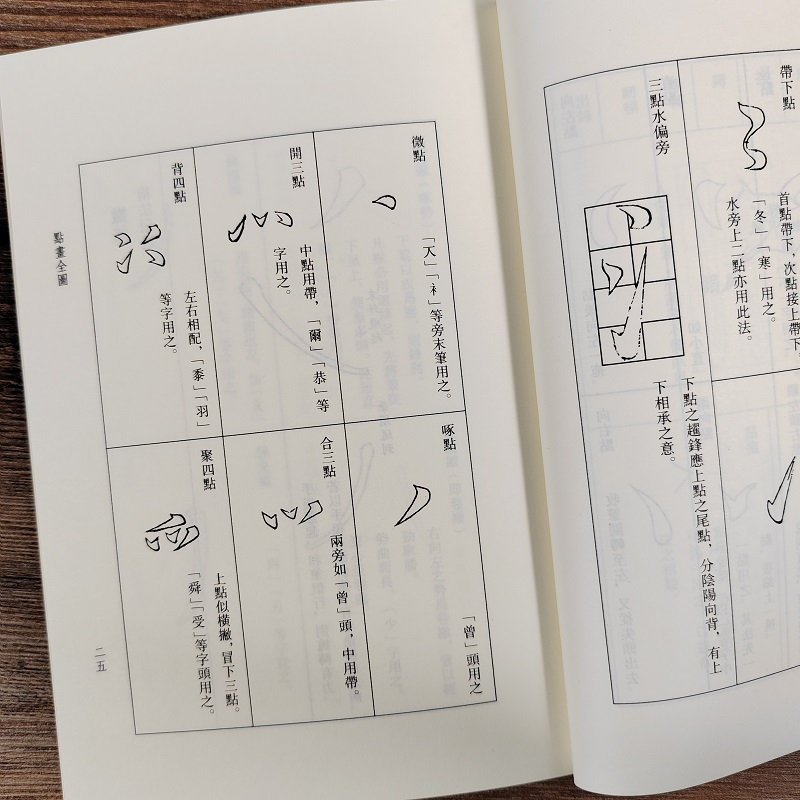 帶下點
首點帶下，次點接上帶下
「冬」「寒」用之。
水旁上二點亦用此法。
三點水偏旁
下點之趯鋒應上點之尾點，分陰陽向背，有上
下相承之意。
微點
「衤」等旁末筆用之。
啄點
「曾」頭用之
開三點
中點用帶，「爾」「恭」等
字用之。
合三點
兩旁如「曾」頭，中用帶。
背四點
左右相配，「黍」「羽」
等字用之。
聚四點
上點似橫撇，冒下三點。
「舜」「受」等字頭用之。
點畫全圖
二五